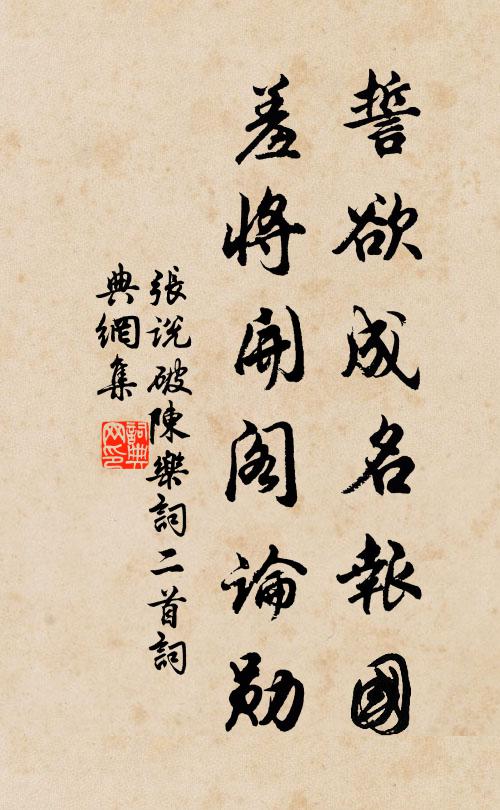 誓欲成名報國
羞將開閣論勛
張说破陳樂詞二首詞
典網集
詞典网印